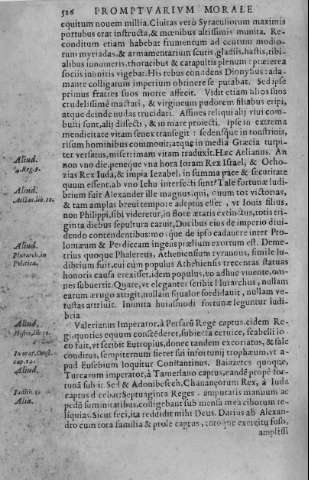 526 PROMPTVARIVM MORALE
equitum nouem millia. Ciuitas verò Syracusiorum maximis
portubus erat instructa, & mœnibus altissimis munita. Re-
conditum etiam habebat frumentum ad centum modio-
rum myriadas, & armamentarium scutis, gladiis, hastis,
& capapultis plenum:
sociis inuictis vigebat. His rebus confidens Dionysius
mante colligatum imperium obtinere se putabat. Sed ipse
primus fratres suos morte affecit. Vidit etiam filios suos
crudelissimè mactari, & virgineum pudorem filiabus eripi,
atque deinde nudas trucidari. Affines reliqui alij viui com-
busti sunt, alij dissecti, & in mare proiecti. ipse in extrema
mendicitate vitam senex transegit: sedensque in tonstrinis,
risum hominibus commouit, atque in media Græcia turpi-
ter versatus, miserrimam vitam traduxit. Hæc Aelianus. An
non vno die, geneque vna hora Ioram Rex Israel, & Ocho-
zias Rex Iuda, & impia Iezabel, in summa pace & securitate
quum essent, ab vno Iehu interfecti sunt? Tale fortunæ ludi-
brium fuit Alexander ille magnus, qui, quum tot victorias,
& tam amplas breui tempore adeptus esset, vt Iouis filius,
non Philippi, sibi videretur, in flore ætatis extinctus, totis tri-
ginta diebus sepultura caruit, Ducibus eius de imperio diui-
dendo contendentibus:
lomæum & Perdiccam ingens prælium exortum est. Deme-
trius quoque Phalereus, Atheniensium tyrannus, simile lu-
dibrium fuit, cui cùm populus Atheniensis trecentas statuas
honoris causa erexisset, idem populus, eo adhuc viuente, om-
nes subuertit. Quare, vt eleganter scribit Plutarchus, nullam
earum ærugo attigit, nullam squalor sordidauit, nullam ve-
tustas attriuit. Inuitta huiusmodi fortunæ leguntur ludi-
bria.
Valerianus Imperator, à Persarum Rege captus, eidem Re-
gi, quoties equum conscenderet, subiecta ceruice, scabelli lo-
co fuit, vt scribit Eutropius, donec tandem excoriatus, & sale
conditus, sempiternum fieret sui infortunij trophæum, vt a-
pud Eusebium loquitur Constantinus. Baiazetes quoque,
Turcarum imperator, à Tamerlano captus, eandē propè for-
tunā subiit. Sed & Adonibesech, Chananæorum Rex, à Iuda
captus dicebat: Septuaginta Reges amputatis manuum ac
pedū summitatibus, colligebant sub mensa mea ciborum re-
liquias: Sicut feci, ita reddidit mihi Deus. Darius ab Alexan-
dro cum tota familia & prole captus,
amplissi
Aliud.
4. Reg. 9.
Aliud.
Aliud.
Plutarch. in
Politica.
Aliud.
Aliud.
Alia.